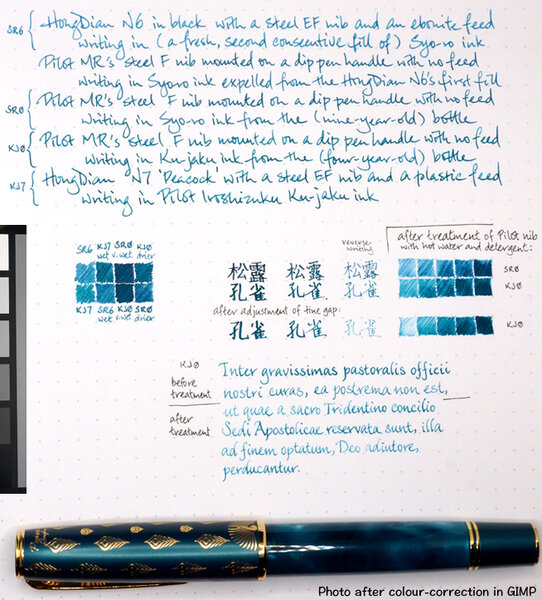 SR6 { HongDian N6 in black with a steel EF nib and an ebonite feed
writing in (a fresh, second consecutive fill of) Syo-ro ink
Pilot MR's steel F nib mounted on a dip pen handle with no feed
writing in Syo-ro ink expelled from the HongDian N6's first fill
SRØ { Pilot MR's steel F nib mounted on a dip pen handle with no feed
writing in Syo-ro ink from the (nine-year-old) bottle
KJØ { Pilot MR's steel F nib mounted on a dip pen handle with no feed
writing in Ku-jaku ink from the (four-year-old) bottle
KJ7 { HongDian N7 'Peacock' with a steel EF nib and a plastic feed
writing in Pilot Iroshizuku Ku-jaku ink
SR6 KJ7 SRØ KJØ
wet v.wet drier
KJ7 SR6 KJØ SRØ
wet v.wet drier
reverse-writing
松露 松露 松露
孔雀 孔雀 孔雀
after adjustment of tine gap:
孔雀 孔雀 孔雀
after treatment of Pilot nib
with hot water and detergent:
SRØ
KJØ
KJØ
KJØ
before
treatment
after
treatment
Inter gravissimas pastoralis officii
nostri curas, ea postrema non est,
ut quae a sacro Tridentino concilio
Sedi Apostolicae reservata sunt, illa
ad finem optatum, Deo adiutore,
perducantur.
Photo after colour-correction in GIMP